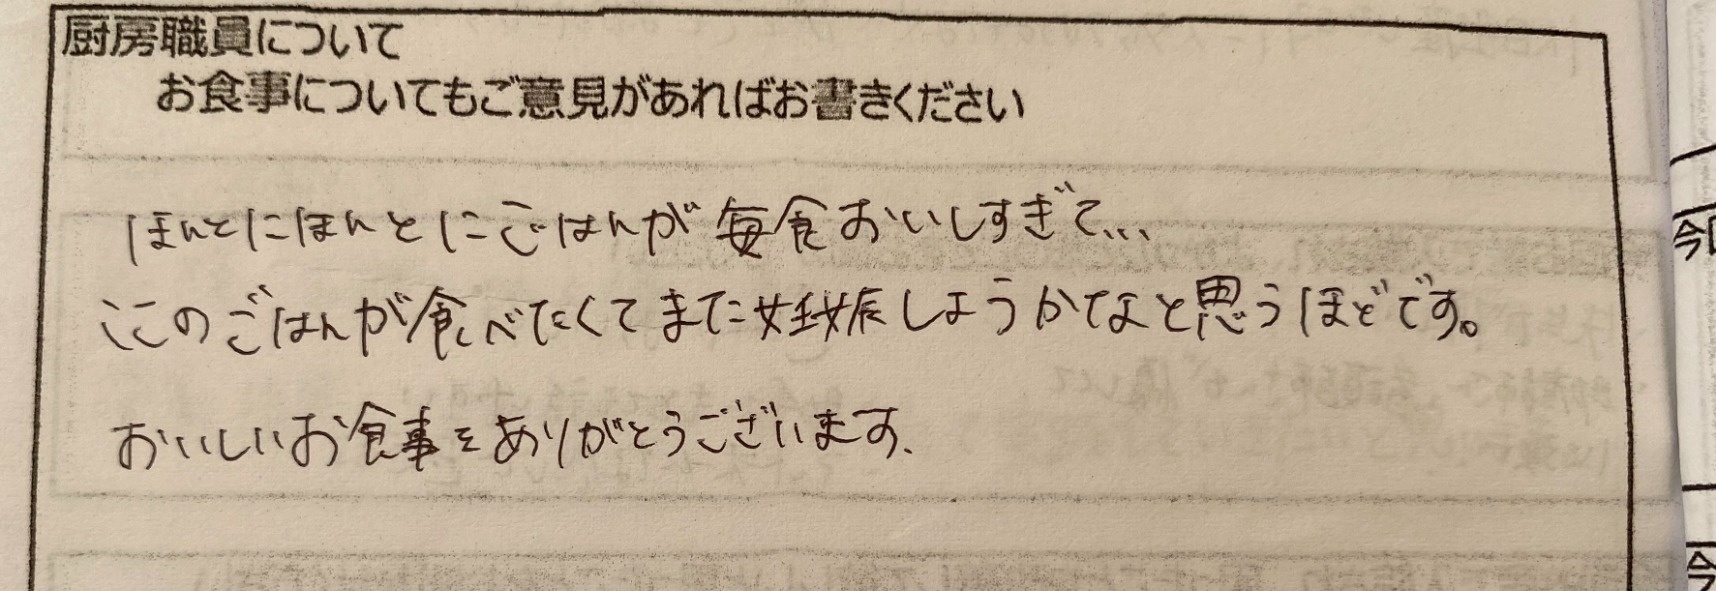 厨房職員について
お食事についてもご意見があればお書きください
ほんとにほんとにごはんが毎食おいしすぎて...
ここのごはんが食べたくてまた妊娠しようかなと思うほどです。
おいしいお食事をありがとうございます.
今
今